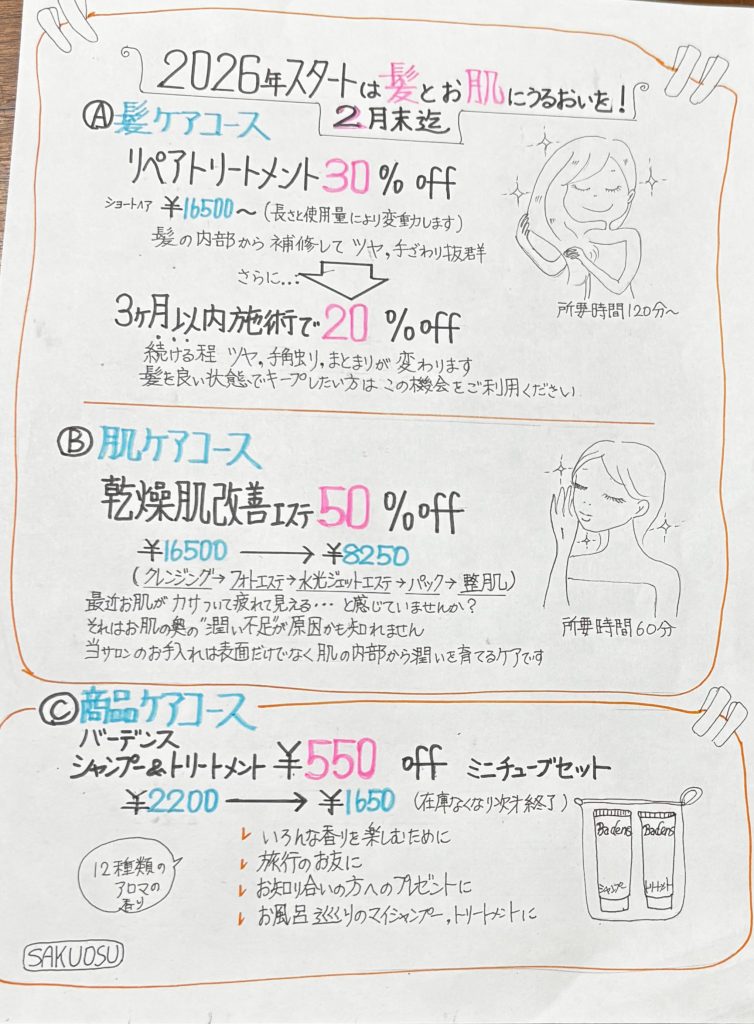 2026年スタートは髪とお肌にうるおいを!
2月末迄
Ⓐ髪ケアコース
リペアトリートメント30%off
ショートヘア ¥16500〜(長さと使用量により変動します)
髪の内部から補修してツヤ,手ざわり抜群
さらに...
所要時間120分〜
3ヶ月以内施術で20%off
続ける程 ツヤ,手触り,まとまりが変わります
髪を良い状態でキープしたい方はこの機会をご利用ください
Ⓑ肌ケアコース
乾燥肌改善エステ50%off
¥16500→¥8250
(クレンジング→フォトエステ→水光ジェットエステ→パック→整肌)
最近お肌がカサついて疲れて見える…と感じていませんか?
それはお肌の奥の"潤い不足"が原因かも知れません
当サロンのお手入れは表面だけでなく肌の内部から潤いを育てるケアです
所要時間60分
Ⓒ商品ケアコース
バーデンス
シャンプー&トリートメント ¥550 off ミニチューブセット
¥2200→¥1650 (在庫なくなり次才終了)
いろんな香りを楽しむために
旅行のお友に
お知り合いの方へのプレゼントに
お風呂巡りのマイシャンプー,トリートメントに
12種類の
アロマの
香り
Badens
シャンプー
Badens
トリートメント
SAKUOSU